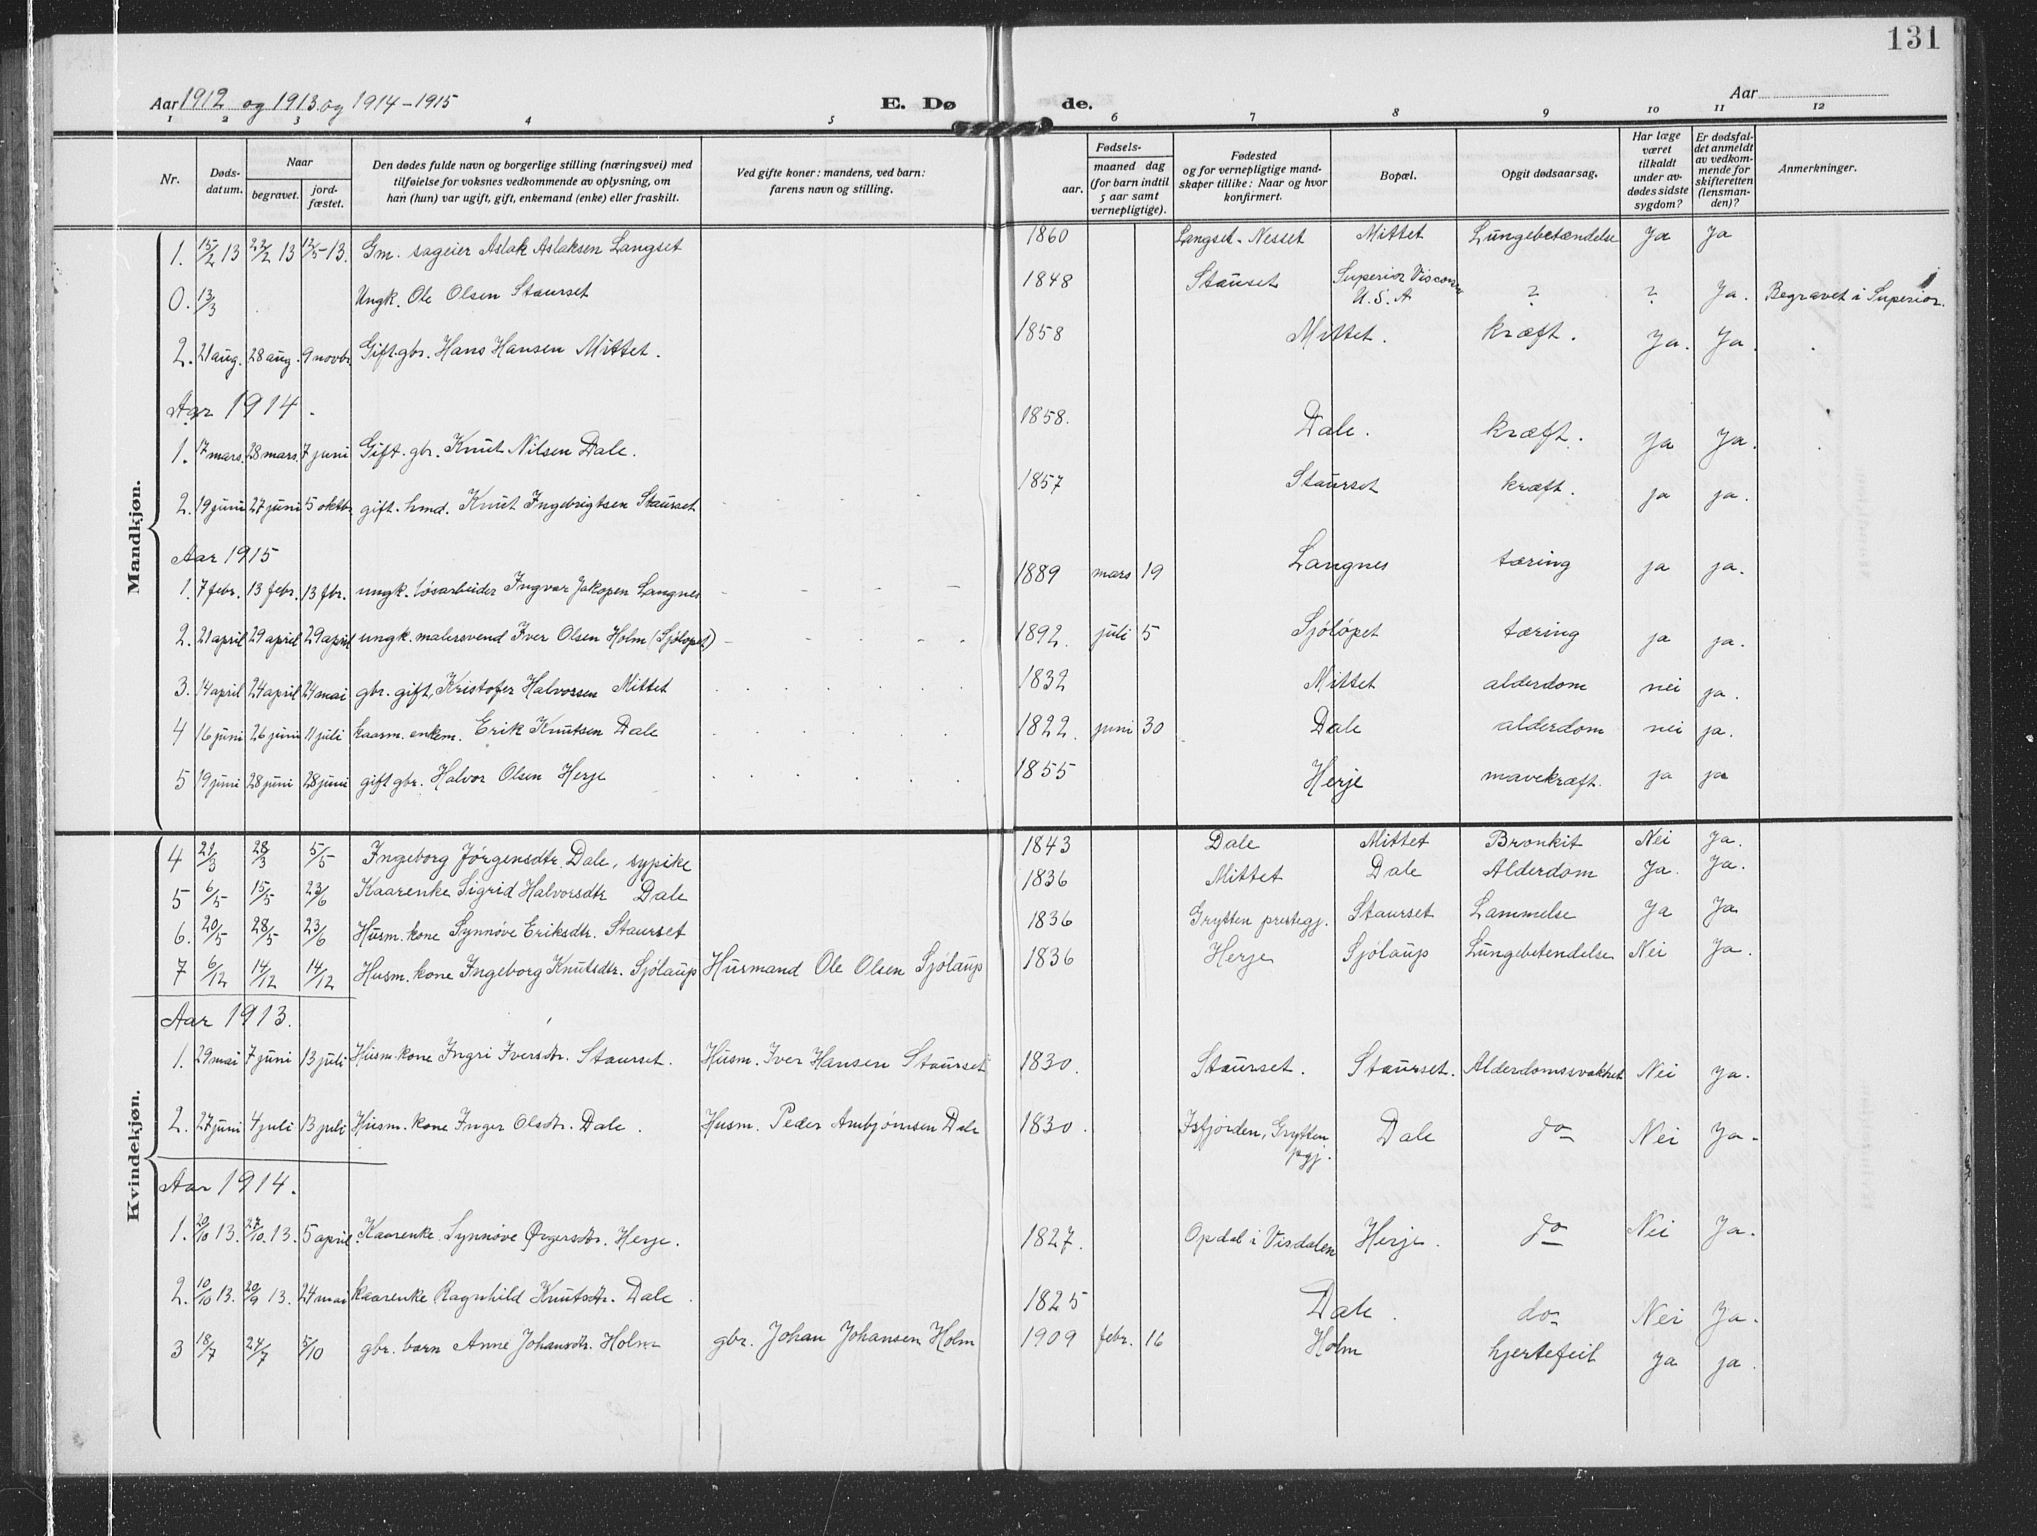 131
Aar 1912 og 1913 og 1914-1915 E. Dø de. Aar
1 2 3 4 5 6 7 8 9 10 11 12
Nr. Døds-datum. Naar begravet. jord-fæstet. Den dødes fulde navn og borgerlige stilling (næringsvei) med tilføielse for voksnes vedkommende av oplysning, om han (hun) var ugift, gift, enkemand (enke) eller fraskilt. Ved gifte koner: mandens, ved barn: farens navn og stilling. Fødsels- aar. maaned dag (for barn indtil 5 aar samt vernepligtige). Fødested og for vernepligtige mand-skaper tillike: Naar og hvor konfirmert. Bopæl. Opgit dødsaarsag. Har læge været tilkaldt under av-dødes sidste sygdom? Er dødsfal-det anmeldt av vedkom-mende for skifteretten (lensman-den)? Anmerkninger.
Mandkjøn.
1. 15/2 13 22/2 13 12/5-13. Gm. sageier Aslak Aslaksen Langset 1860 Langset. Nesset Mittet Lungebetændelse Ja Ja
0. 13/3 Ungk. Ole Olsen Staurset 1848 Stauset Superior Viscon U.S.A ? ? Ja. Begravet i Superior.
2. 21 aug. 28 aug. 9 novbr. Gift. gbr. Hans Hansen Mittet. 1858 Mittet. kræft. Ja. Ja.
Aar 1914.
1. 17 mars. 28 mars. 7 juni Gift. gbr. Knut Nilsen Dale. 1858. Dale. kræft. Ja Ja.
2. 19 juni 27 juni 5 oktbr. gift. hmd. Knut Ingebrigtsen Staurset 1857 Staurset kræft. ja ja.
Aar 1915
1. 7 febr. 13 febr. 13 fbr. ungk. løsarbeider Ingvar Jakopen Langnes 1889 mars 19 Langnes tæring ja ja.
2. 21 april 29 april 29 april ungk. malersvend Iver Olsen Holm (Sjøløpet) 1892. juli 5 Sjøløpet tæring ja ja.
3. 14 april 24 april 24 mai gbr. gift, Kristofer Halvorsen Mittet 1832 Mittet alderdom nei ja.
4 16 juni 26 juni 11 juli kaarm. enkem. Erik Knutsen Dale 1822. juni 30 Dale alderdom nei ja.
5 19 juni 28 juni 28 juni gift gbr. Halvor Olsen Herje 1855 Herje mavekræft. ja ja
Kvindekjøn.
4 21/3 28/3 5/5 Ingeborg Jørgensdtr. Dale, sypike 1843 Dale Mittet Bronkit Nei Ja.
5 6/5 15/5 23/6 Kaarenke Sigrid Halvorsdtr Dale 1836 Mittet Dale Alderdom Ja. Ja.
6. 20/5 28/5 23/6 Husm. kone Synnøve Eriksdtr. Staurset 1836 Grytten prestegj. Staurset Lammelse Ja Ja
7 6/12 14/12 14/12 Husm. kone Ingeborg Knutsdtr. Sjølaup Husmand Ole Olsen Sjølaup 1836 Herje Sjølaup Lungebetendelse Nei Ja.
Aar 1913.
1. 29 mai 7 juni 13 juli Husm. kone Ingri Iversdtr. Staurset. Husm. Iver Hansen Staurset 1830. Staurset. Staurset. Alderdomssvakhet Nei Ja.
2. 27 juni 4 juli 13 juli Husm. kone Inger Olsdtr. Dale. Husm. Peder Ambjørnsen Dale 1830. Isfjorden, Grytten pgj. Dale do Nei Ja.
Aar 1914.
1. 20/10 13. 27/10. 13. 5 april Kaarenke Synnøve Ørgersdtr. Herje. 1827. Opdal i Visdalen Herje. do Nei Ja.
2. 10/10 13. 20/9 13. 24 mai Kaarenke Ragnhild Knutsdtr. Dale. 1825 Dale. do Nei Ja.
3 18/7 24/7 5/10 gbr. barn Anne Johansdtr. Holm gbr. Johan Johansen Holm 1909 febr. 16 Holm hjertefeil ja ja.